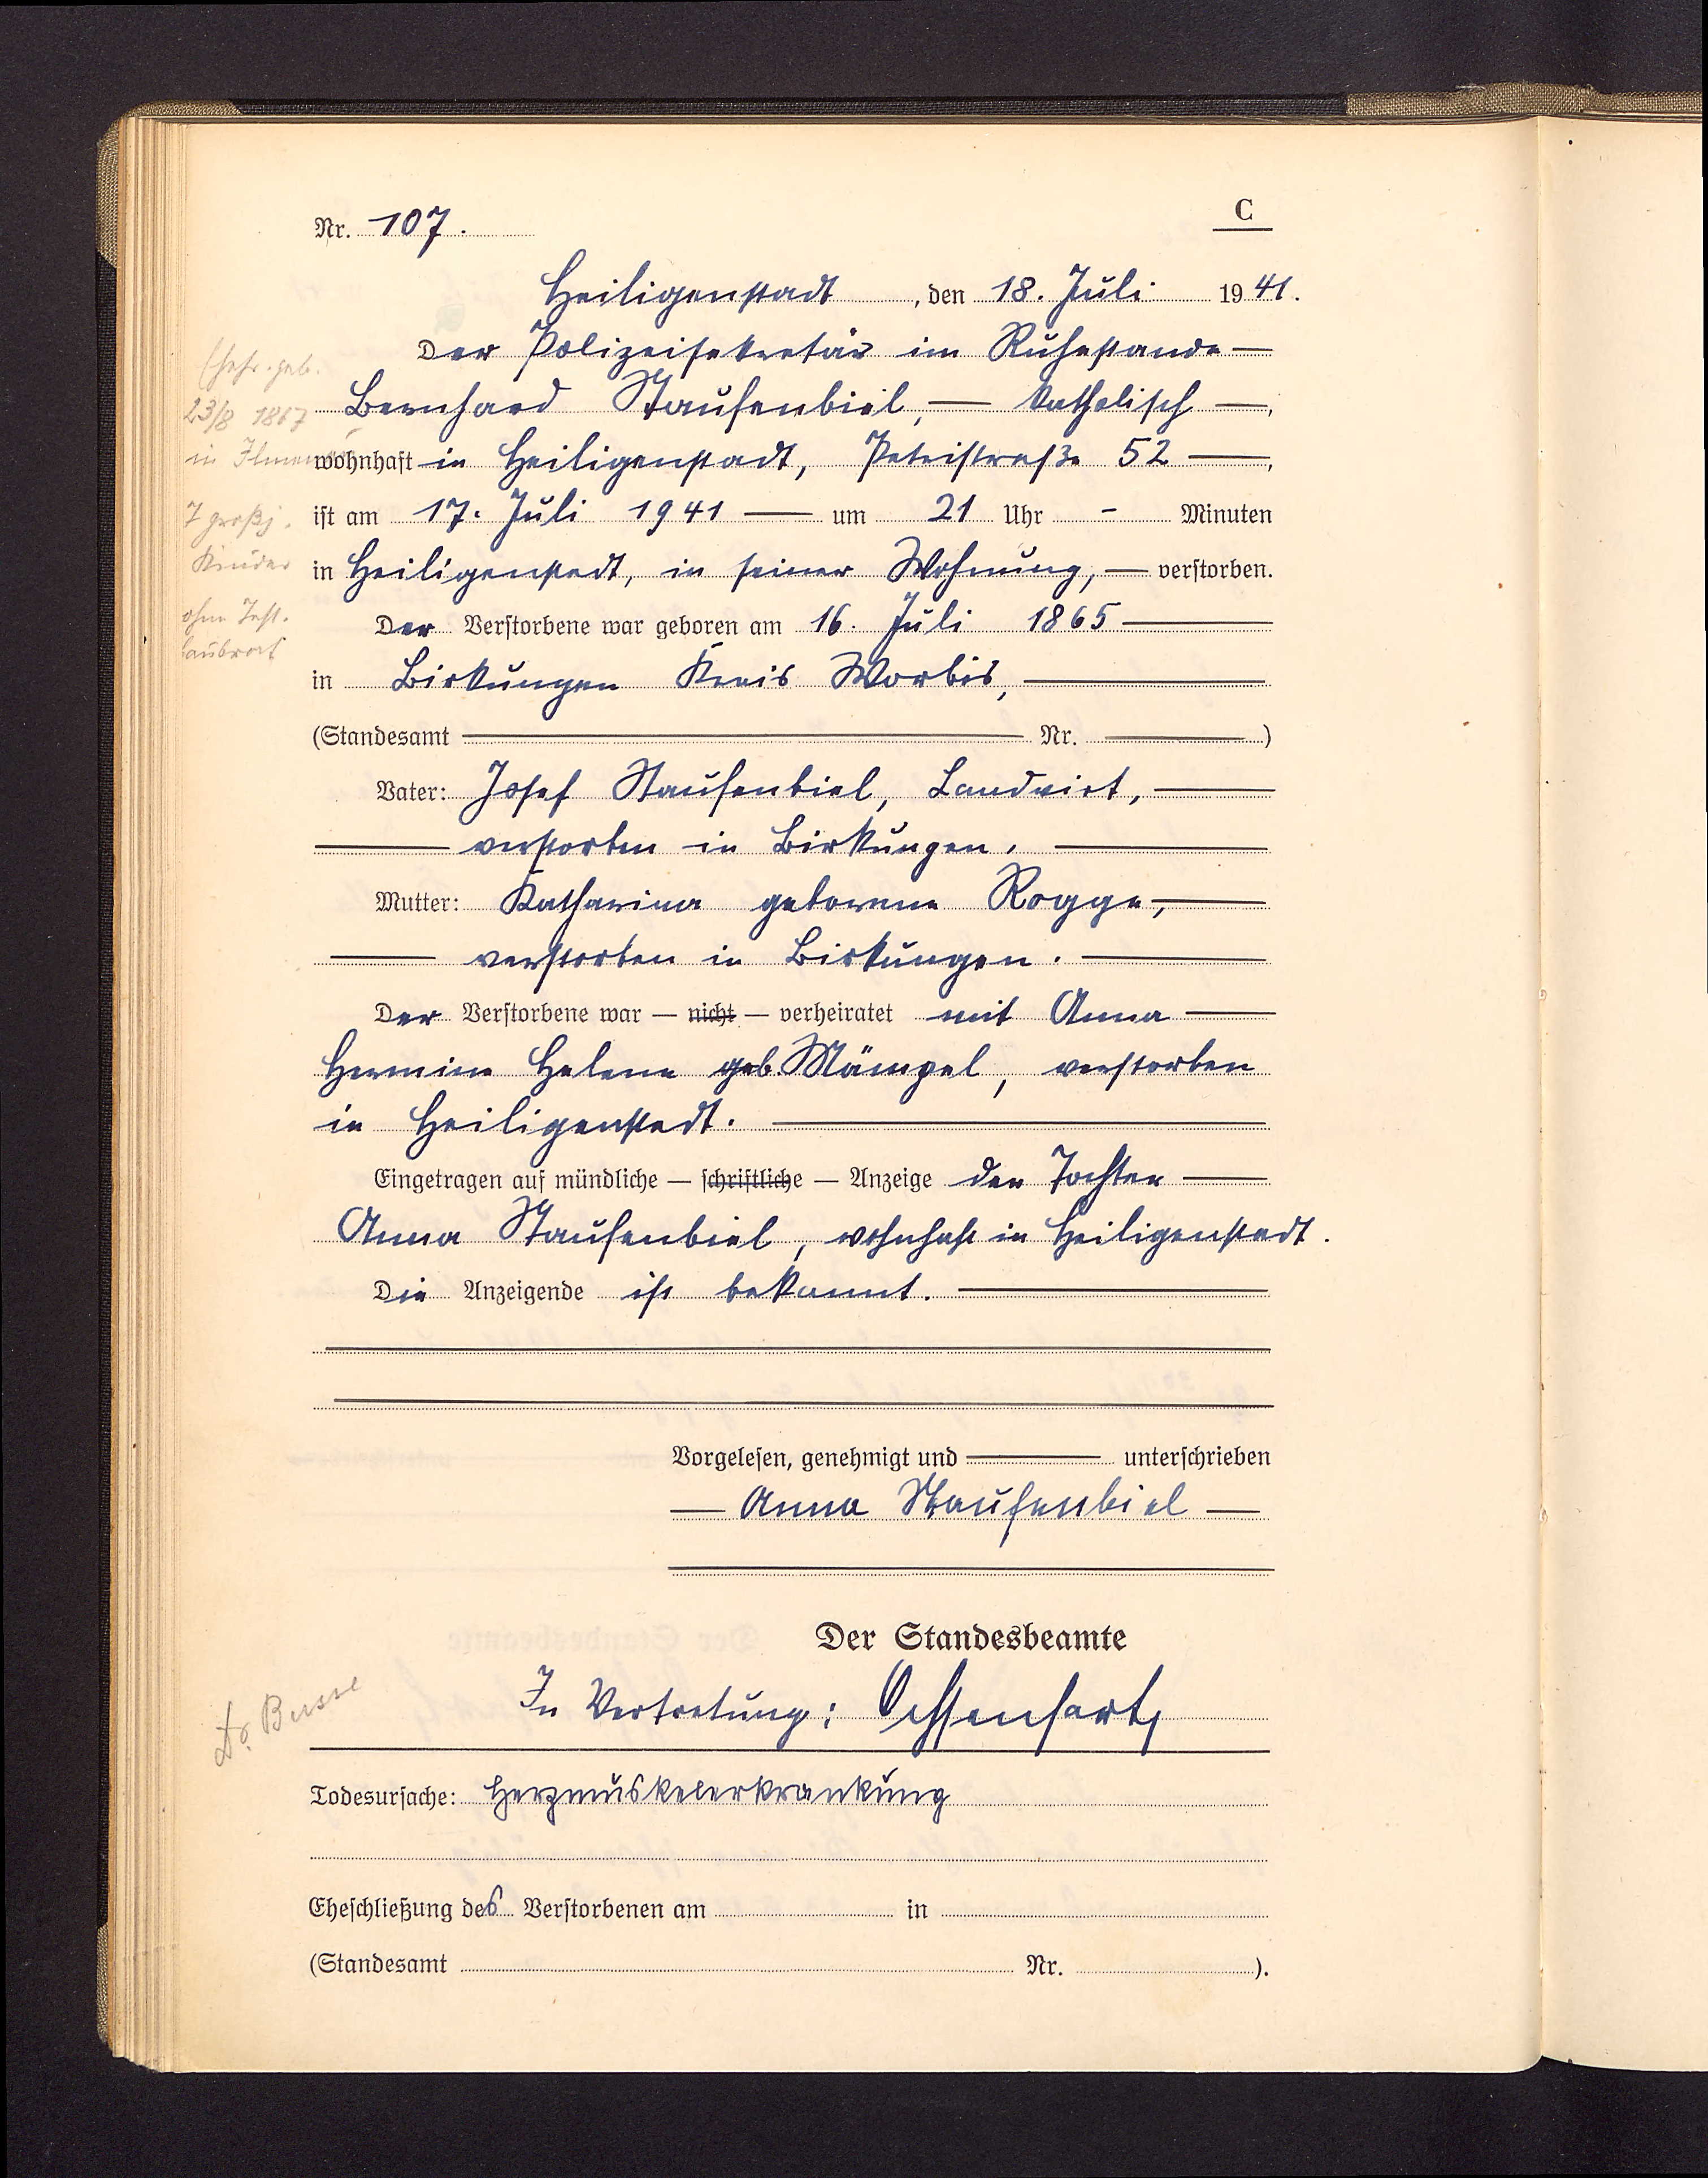 Nr. 107.
C
Heiligenstadt, den 18. Juli 1941.
Der Polizeisekretär im Ruhestande —
Bernhard Staufenbiel, — katholisch —,
wohnhaft in Heiligenstadt, Petristraße 52 —,
ist am 17. Juli 1941 — um 21 Uhr - Minuten
in Heiligenstadt, in seiner Wohnung, — verstorben.
Der Verstorbene war geboren am 16. Juli 1865 —
in Birkungen Kreis Worbis, —
(Standesamt — Nr. —)
Vater: Josef Staufenbiel, Landwirt, —
— verstorben in Birkungen. —
Mutter: Katharina geborene Rogge, —
— verstorben in Birkungen. —
Der Verstorbene war — nicht — verheiratet mit Anna —
Hermine Helene geb. Mämpel, verstorben
in Heiligenstadt. —
Eingetragen auf mündliche — schriftliche — Anzeige der Tochter —
Anna Staufenbiel, wohnhaft in Heiligenstadt.
Die Anzeigende ist bekannt. —
Vorgelesen, genehmigt und — unterschrieben
— Anna Staufenbiel —
Der Standesbeamte
In Vertretung:
Todesursache: Herzmuskelerkrankung
Eheschließung des Verstorbenen am in
(Standesamt Nr. ).
geb.
23/8 1867
in
7 großj.
Kinder
ohne Test.
Dr. Busse